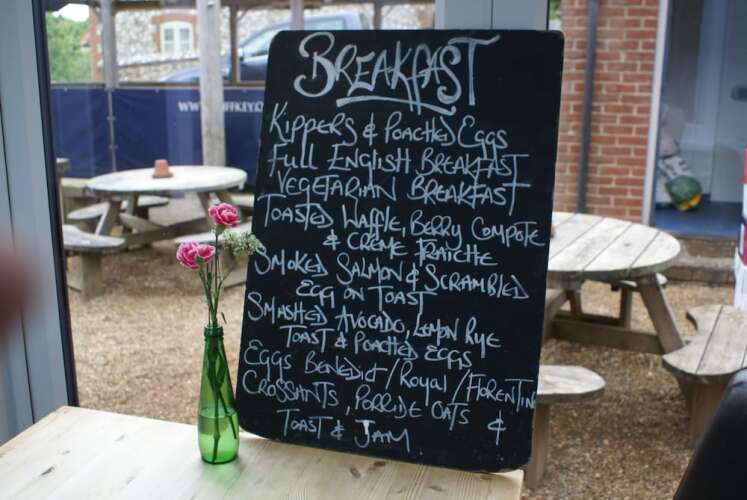 BREAKFAST
KIPPERS & POACHED EGGS
FULL ENGLISH BREAKFAST
VEGETARIAN BREAKFAST
TOASTED WAFFLE, BERRY COMPOTE
& CREME FRAICHE
SMOKED SALMON & SCRAMBLED
EGG ON TOAST
SMASHED AVOCADO, LEMON RYE
TOAST & POACHED EGGS
EGGS BENEDICT / ROYAL / FLORENTIN
CROSSANTS, PORRIDE OATS &
TOAST & JAM